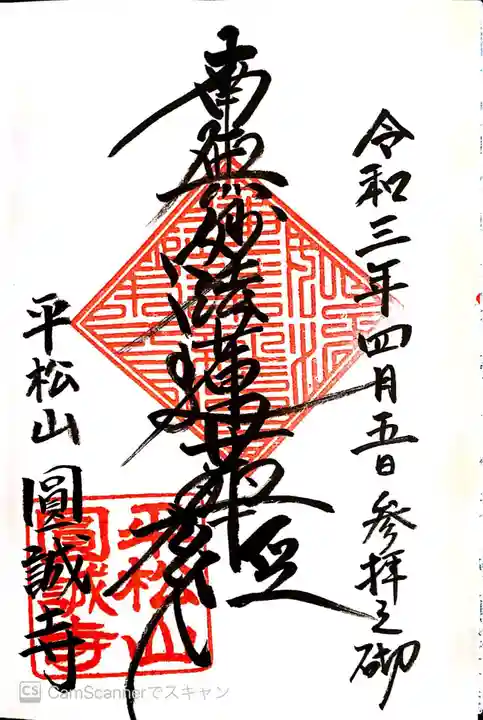 令和三年四月五日 参拝之砌
南無妙法蓮華経
平松山 圓誠寺
平松山
圓誠寺
CS CamScannerでスキャン